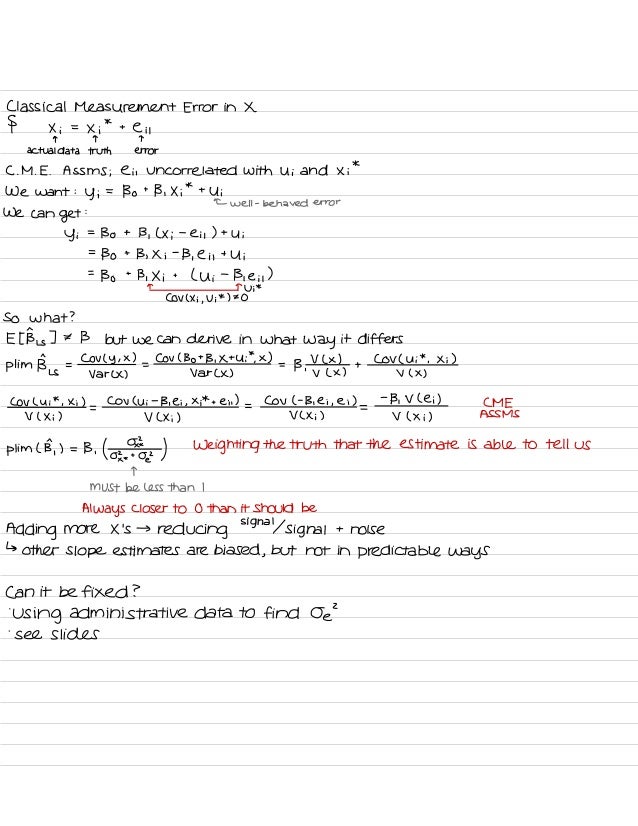 Classical Measurement Error in X
$ Xᵢ = Xᵢ* + eᵢ₁
↑ ↑ ↑
actual data truth error
C.M.E. Assms; eᵢ₁ uncorrelated with uᵢ and xᵢ*
We want: yᵢ = β₀ + β₁Xᵢ* + uᵢ
↑ well-behaved error
We can get:
yᵢ = β₀ + β₁(xᵢ - eᵢ₁) + uᵢ
= β₀ + β₁xᵢ - β₁eᵢ₁ + uᵢ
= β₀ + β₁xᵢ + (uᵢ - β₁eᵢ₁)
uᵢ*
Cov(xᵢ, uᵢ*) ≠ 0
So what?
E[β̂LS] ≠ β but we can derive in what way it differs
plim β̂LS = Cov(y,x)/Var(x) = Cov(β₀+β₁x+uᵢ*,x)/Var(x) = β₁ V(x)/V(x) + Cov(uᵢ*, xᵢ)/V(x)
Cov(uᵢ*, xᵢ)/V(xᵢ) = Cov(uᵢ-β₁eᵢ, xᵢ*+eᵢ₁)/V(xᵢ) = Cov(-β₁eᵢ, eᵢ)/V(xᵢ) = -β₁V(eᵢ)/V(xᵢ) CME ASSMS
plim(β̂₁) = β₁ (σ²x*/σ²x*+σ²e) Weighting the truth that the estimate is able to tell us
↑
must be less than 1
Always closer to 0 than it should be
Adding more X's → reducing signal/signal + noise
↳ other slope estimates are biased, but not in predictable ways
Can it be fixed?
·using administrative data to find σe²
·see slides